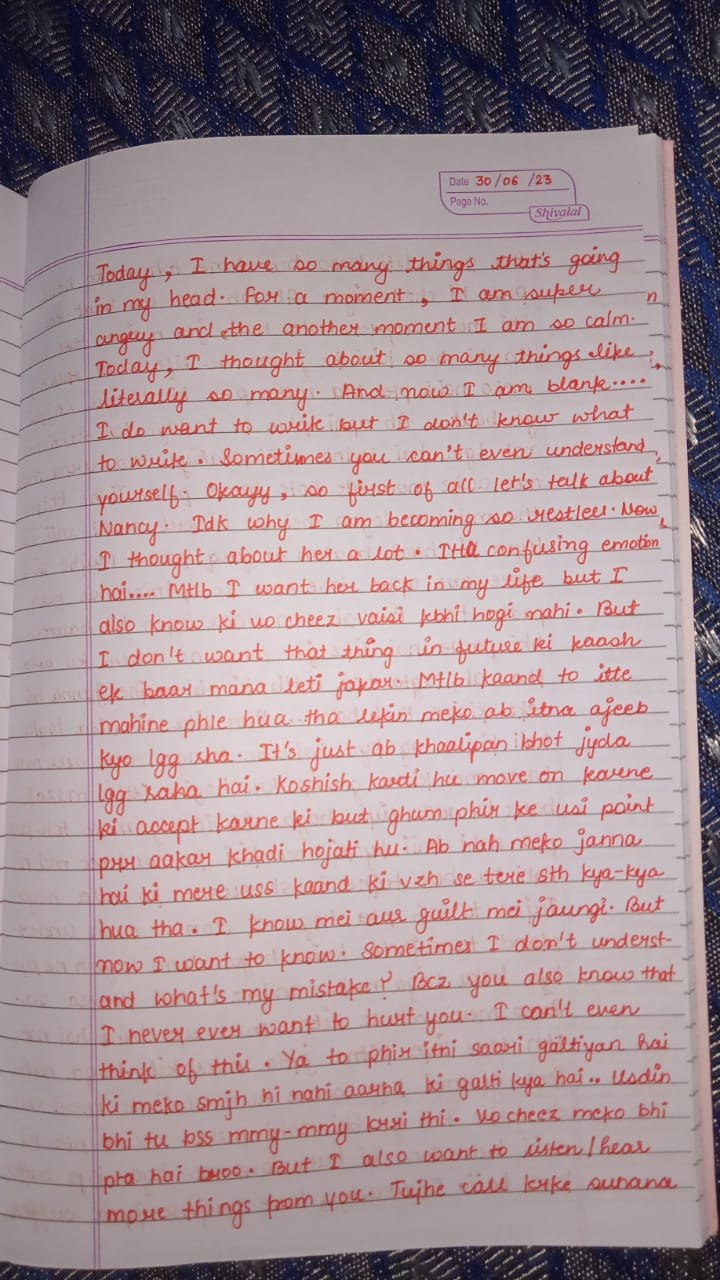 Date 30/06/23
Page No.
Shivalal
Today, I have so many things that's going
in my head. For a moment, I am super
angry and the another moment I am so calm.
Today, I thought about so many things like
literally so many. And now I am blank....
I do want to write but I don't know what
to write. Sometimes you can't even understand
yourself. Okayy, so first of all let's talk about
Nancy. Idk why I am becoming so restless. Now
I thought about her a lot. confusing emotion
hai.... Mtlb I want her back in my life but I
also know ki vo cheez vaisi kbhi hogi nahi. But
I don't want that thing in future ki kaash
ek baar mana leti jakar. Mtlb kaand to itte
mahine phle hua tha lekin meko ab itna ajeeb
kyo lgg rha. It's just ab khaalipan bhot jyda
lgg raha hai. Koshish kardi hu move on karne
ki accept karne ki but ghum phir ke usi point
prr aakar khadi hojati hu. Ab nah meko janna
hai ki mere uss kaand ki vzh se tere sth kya-kya
hua tha. I know mei aur guilt mei jaungi. But
now I want to know. Sometimes I don't underst-
and what's my mistake? Bcz you also know that
I never ever want to hurt you. I can't even
think of this. Ya to phir itni saari galtiyan hai
ki meko smjh hi nahi aarha ki galti kya hai.. Usdin
bhi tu bss mmy-mmy krri thi. Vo cheez meko bhi
pta hai broo. But I also want to listen/hear
more things from you. Tujhe call krke sunana